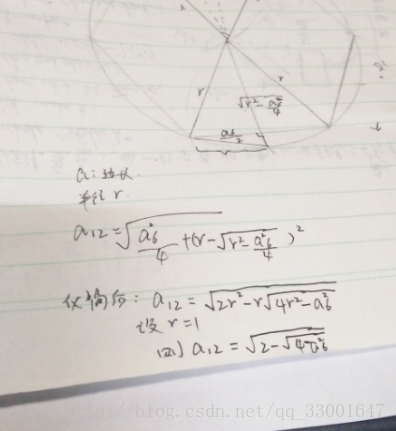 r
r
√r² - a₆²/4
a₆/2
r
a: 边长
半径 r.
a₁₂ = √a₆²/4 + (r - √r² - a₆²/4)²
化简后: a₁₂ = √2r² - r√4r² - a₆²
设 r = 1
则 a₁₂ = √2 - √4 - a₆²
http://blog.csdn.net/qq_33001647